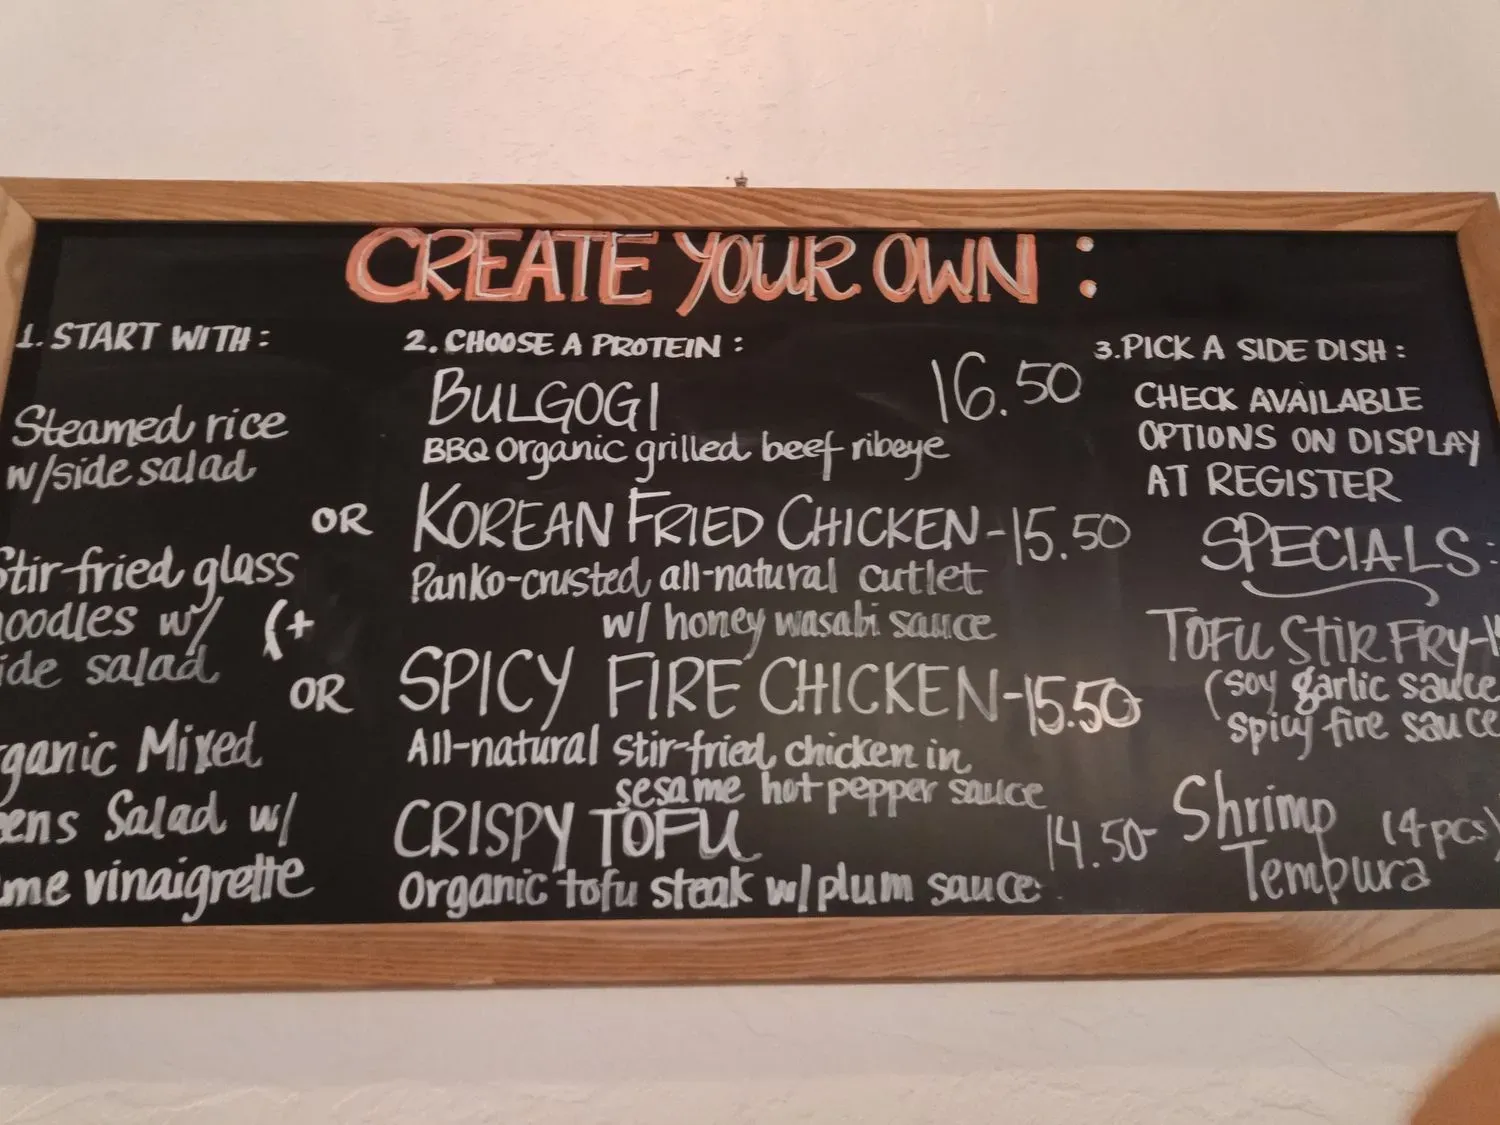 CREATE YOUR OWN :
1. START WITH :
Steamed rice
w/side salad
OR
Stir-fried glass
noodles w/ (+
side salad
OR
Organic Mixed
Greens Salad w/
vinaigrette
2. CHOOSE A PROTEIN :
BULGOGI 16.50
BBQ organic grilled beef ribeye
KOREAN FRIED CHICKEN-15.50
Panko-crusted all-natural cutlet
w/ honey wasabi sauce
SPICY FIRE CHICKEN-15.50
All-natural stir-fried chicken in
sesame hot pepper sauce
CRISPY TOFU 14.50
Organic tofu steak w/plum sauce
3. PICK A SIDE DISH :
CHECK AVAILABLE
OPTIONS ON DISPLAY
AT REGISTER
SPECIALS:
TOFU STIR FRY-
(soy garlic sauce
spicy fire sauce
Shrimp (4pcs)
Tempura